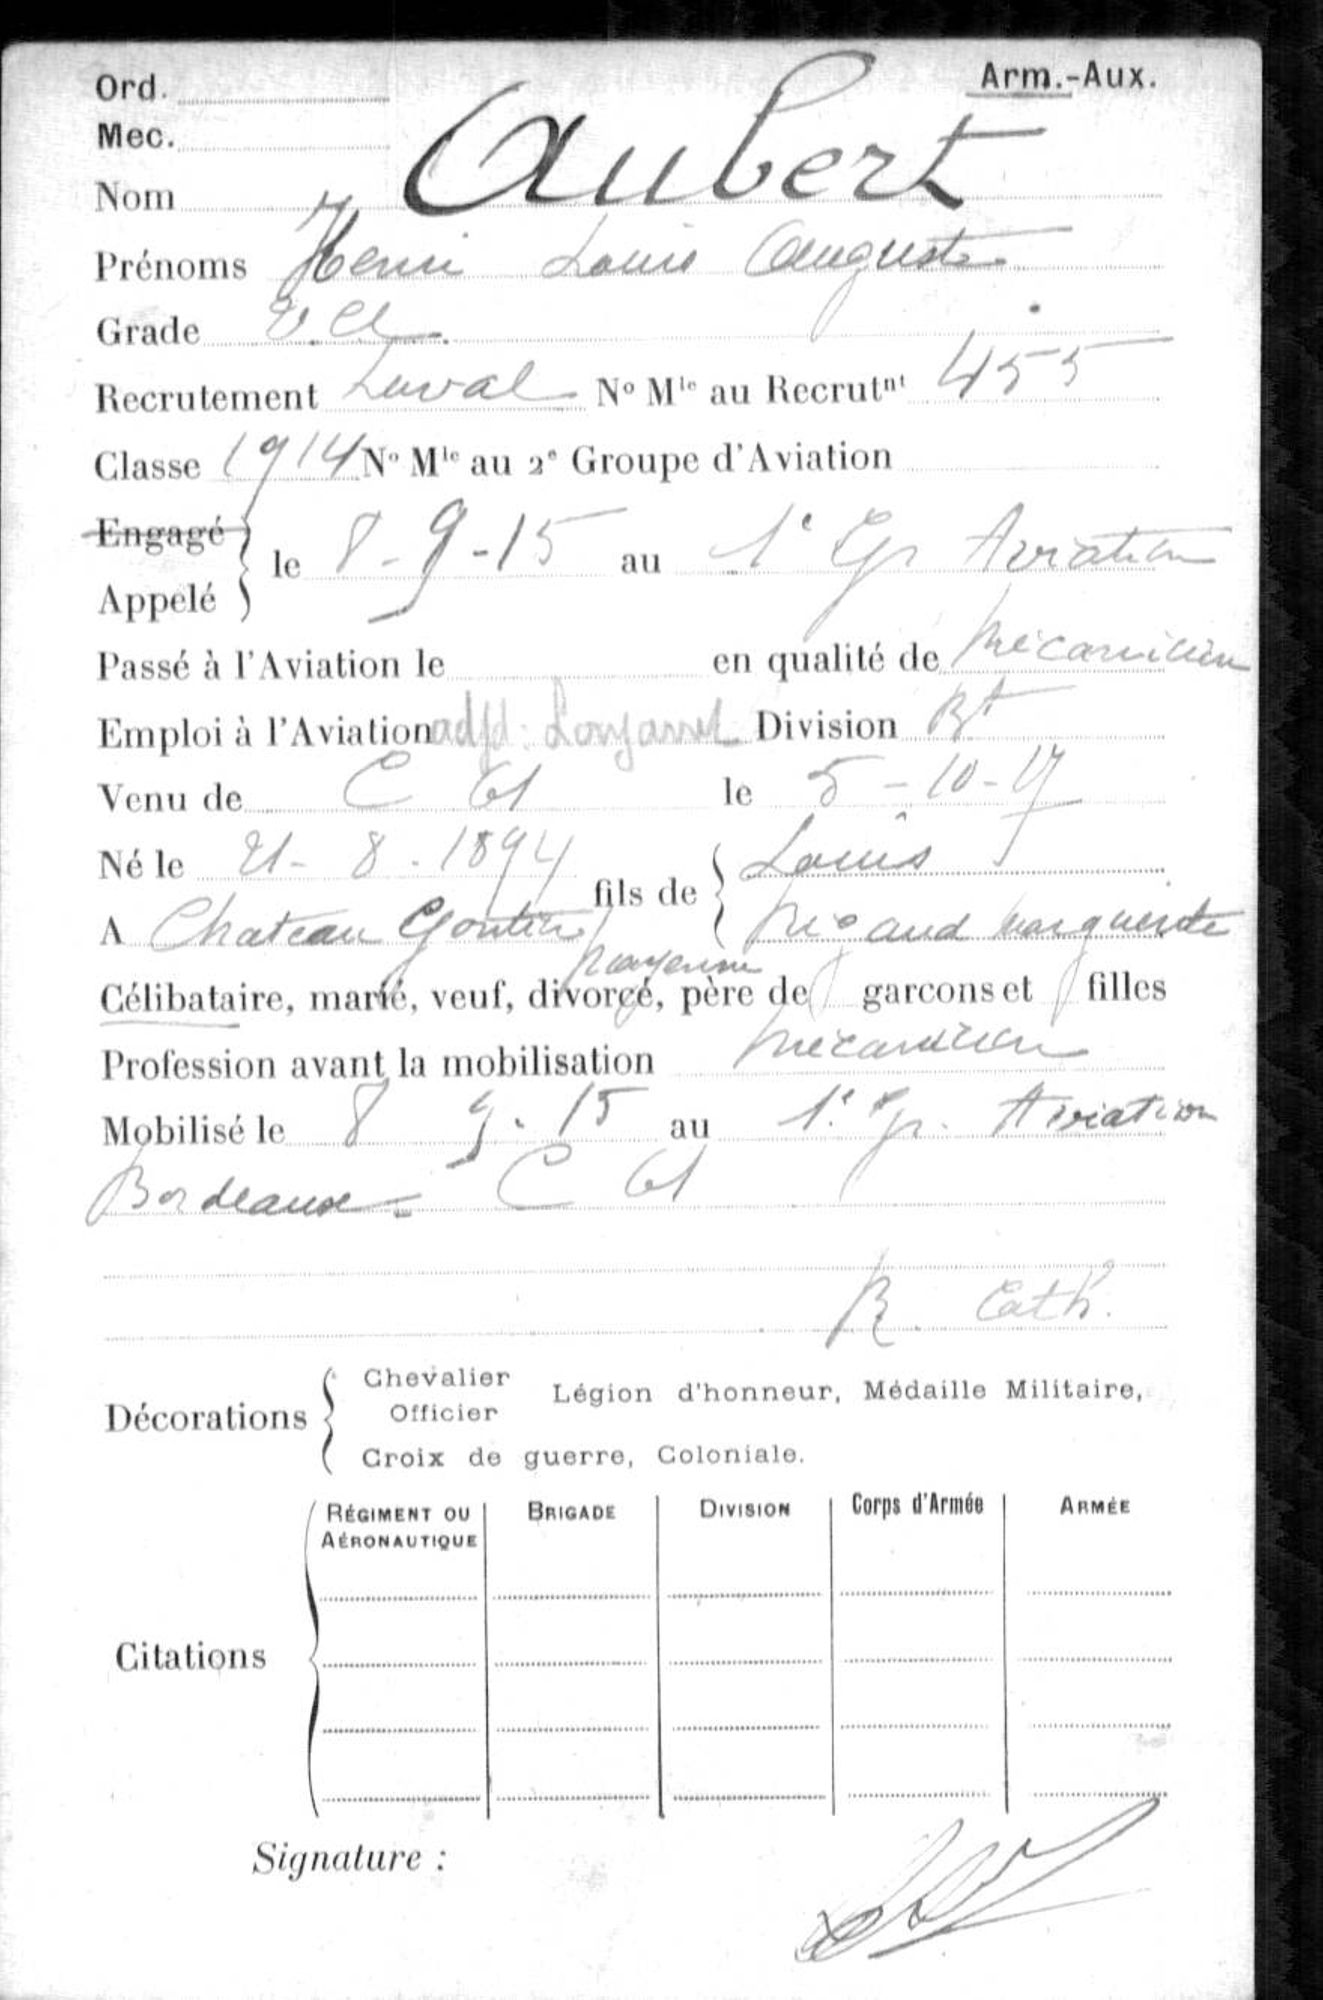 Ord. Arm.-Aux.
Mec.
Nom Aubert
Prénoms Henri Louis Auguste
Grade 2e cl.
Recrutement Laval No Mle au Recrutnt 455
Classe 1914 No Mle au 2e Groupe d'Aviation
Engagé
Appelé
le 8-9-15 au 1e Gr Aviation
Passé à l'Aviation le en qualité de Mécanicien
Emploi à l'Aviation Division Bt
Venu de C 61 le 5-10-17
Né le 21-8-1894 fils de Louis
A Chateau Gontier Marguerite
Mayenne
Célibataire, marié, veuf, divorcé, père de / garcons et / filles
Profession avant la mobilisation mécanicien
Mobilisé le 8 9.15 au 1e gr. Aviation
Bordeaux = C 61
R. Cath.
Décorations Chevalier
Officier
Légion d'honneur, Médaille Militaire,
Croix de guerre, Coloniale.
RÉGIMENT OU AÉRONAUTIQUE BRIGADE DIVISION Corps d'Armée ARMÉE
Citations
Signature :